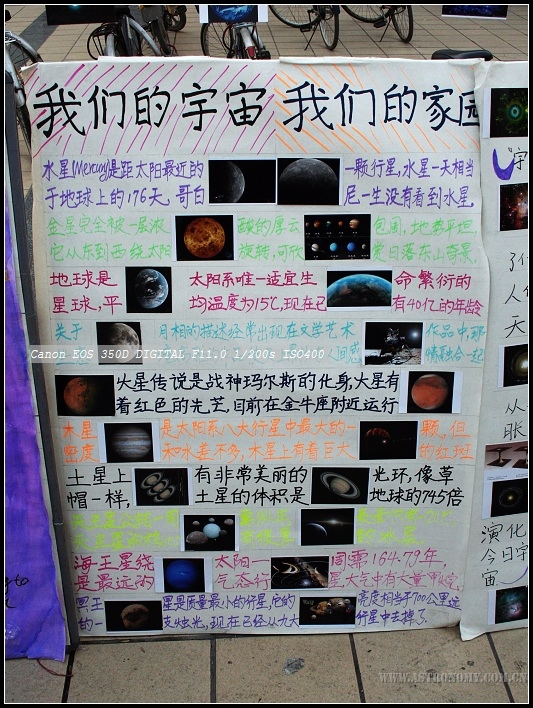 我们的宇宙 我们的家园
水星(Mercury)是距太阳最近的一颗行星,水星一天相当
于地球上的176天,哥白尼一生没有看到水星,
金星完全被一层浓酸的厚云包围,地表平坦
它从东到西绕太阳旋转,可欣爱日落东山奇景,
地球是太阳系唯一适宜生命繁衍的
星球,平均温度为15℃,现在已有40亿的年龄
关于月相的描述经常出现在文学艺术作品中,那
人间感情融合一起
火星传说是战神玛尔斯的化身火星有
着红色的先芒,目前在金牛座附近运行
木星是太阳系八大行星中最大的一颗,但
密度和水差不多,木星上有着巨大的红斑
土星上有非常美丽的光环,像草
帽一样,土星的体积是地球的745倍
海王星绕太阳一周需164.79年,
是最远的气态行星,大气中有大量甲烷,
冥王星是质量最小的行星,它的亮度相当于700公里远
的一支烛光,现在已经从九大行星中去掉了.
Canon EOS 350D DIGITAL F11.0 1/200s ISO400
"宇
人
天
从
演化
今日宇
宙
WWW.ASTRONOMY.COM.CN